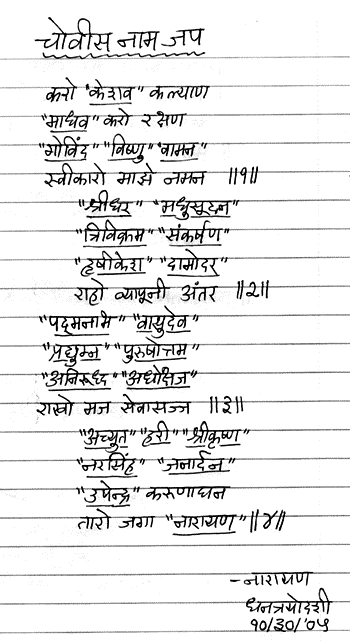 चोवीस नाम जप
करो "केशव" कल्याण
"माधव" करो रक्षण
"गोविंद" "विष्णु" "वामन"
स्वीकारो माझे नमन ॥१॥
"श्रीधर" "मधुसूदन"
"त्रिविक्रम" "संकर्षण"
"हृषीकेश" "दामोदर"
राहो व्यापूनी अंतर ॥२॥
"पद्मनाभ" "वासुदेव"
"प्रद्युम्न" "पुरुषोत्तम"
"अनिरुध्द" "अधोक्षज"
राखो मज सेवासज्ज ॥३॥
"अच्युत" "हरी" "श्रीकृष्ण"
"नरसिंह" "जनार्दन"
"उपेन्द्र" करुणाघन
तारो जगा "नारायण" ॥४॥
-नारायण
धनत्रयोदशी
१०/३०/'०५